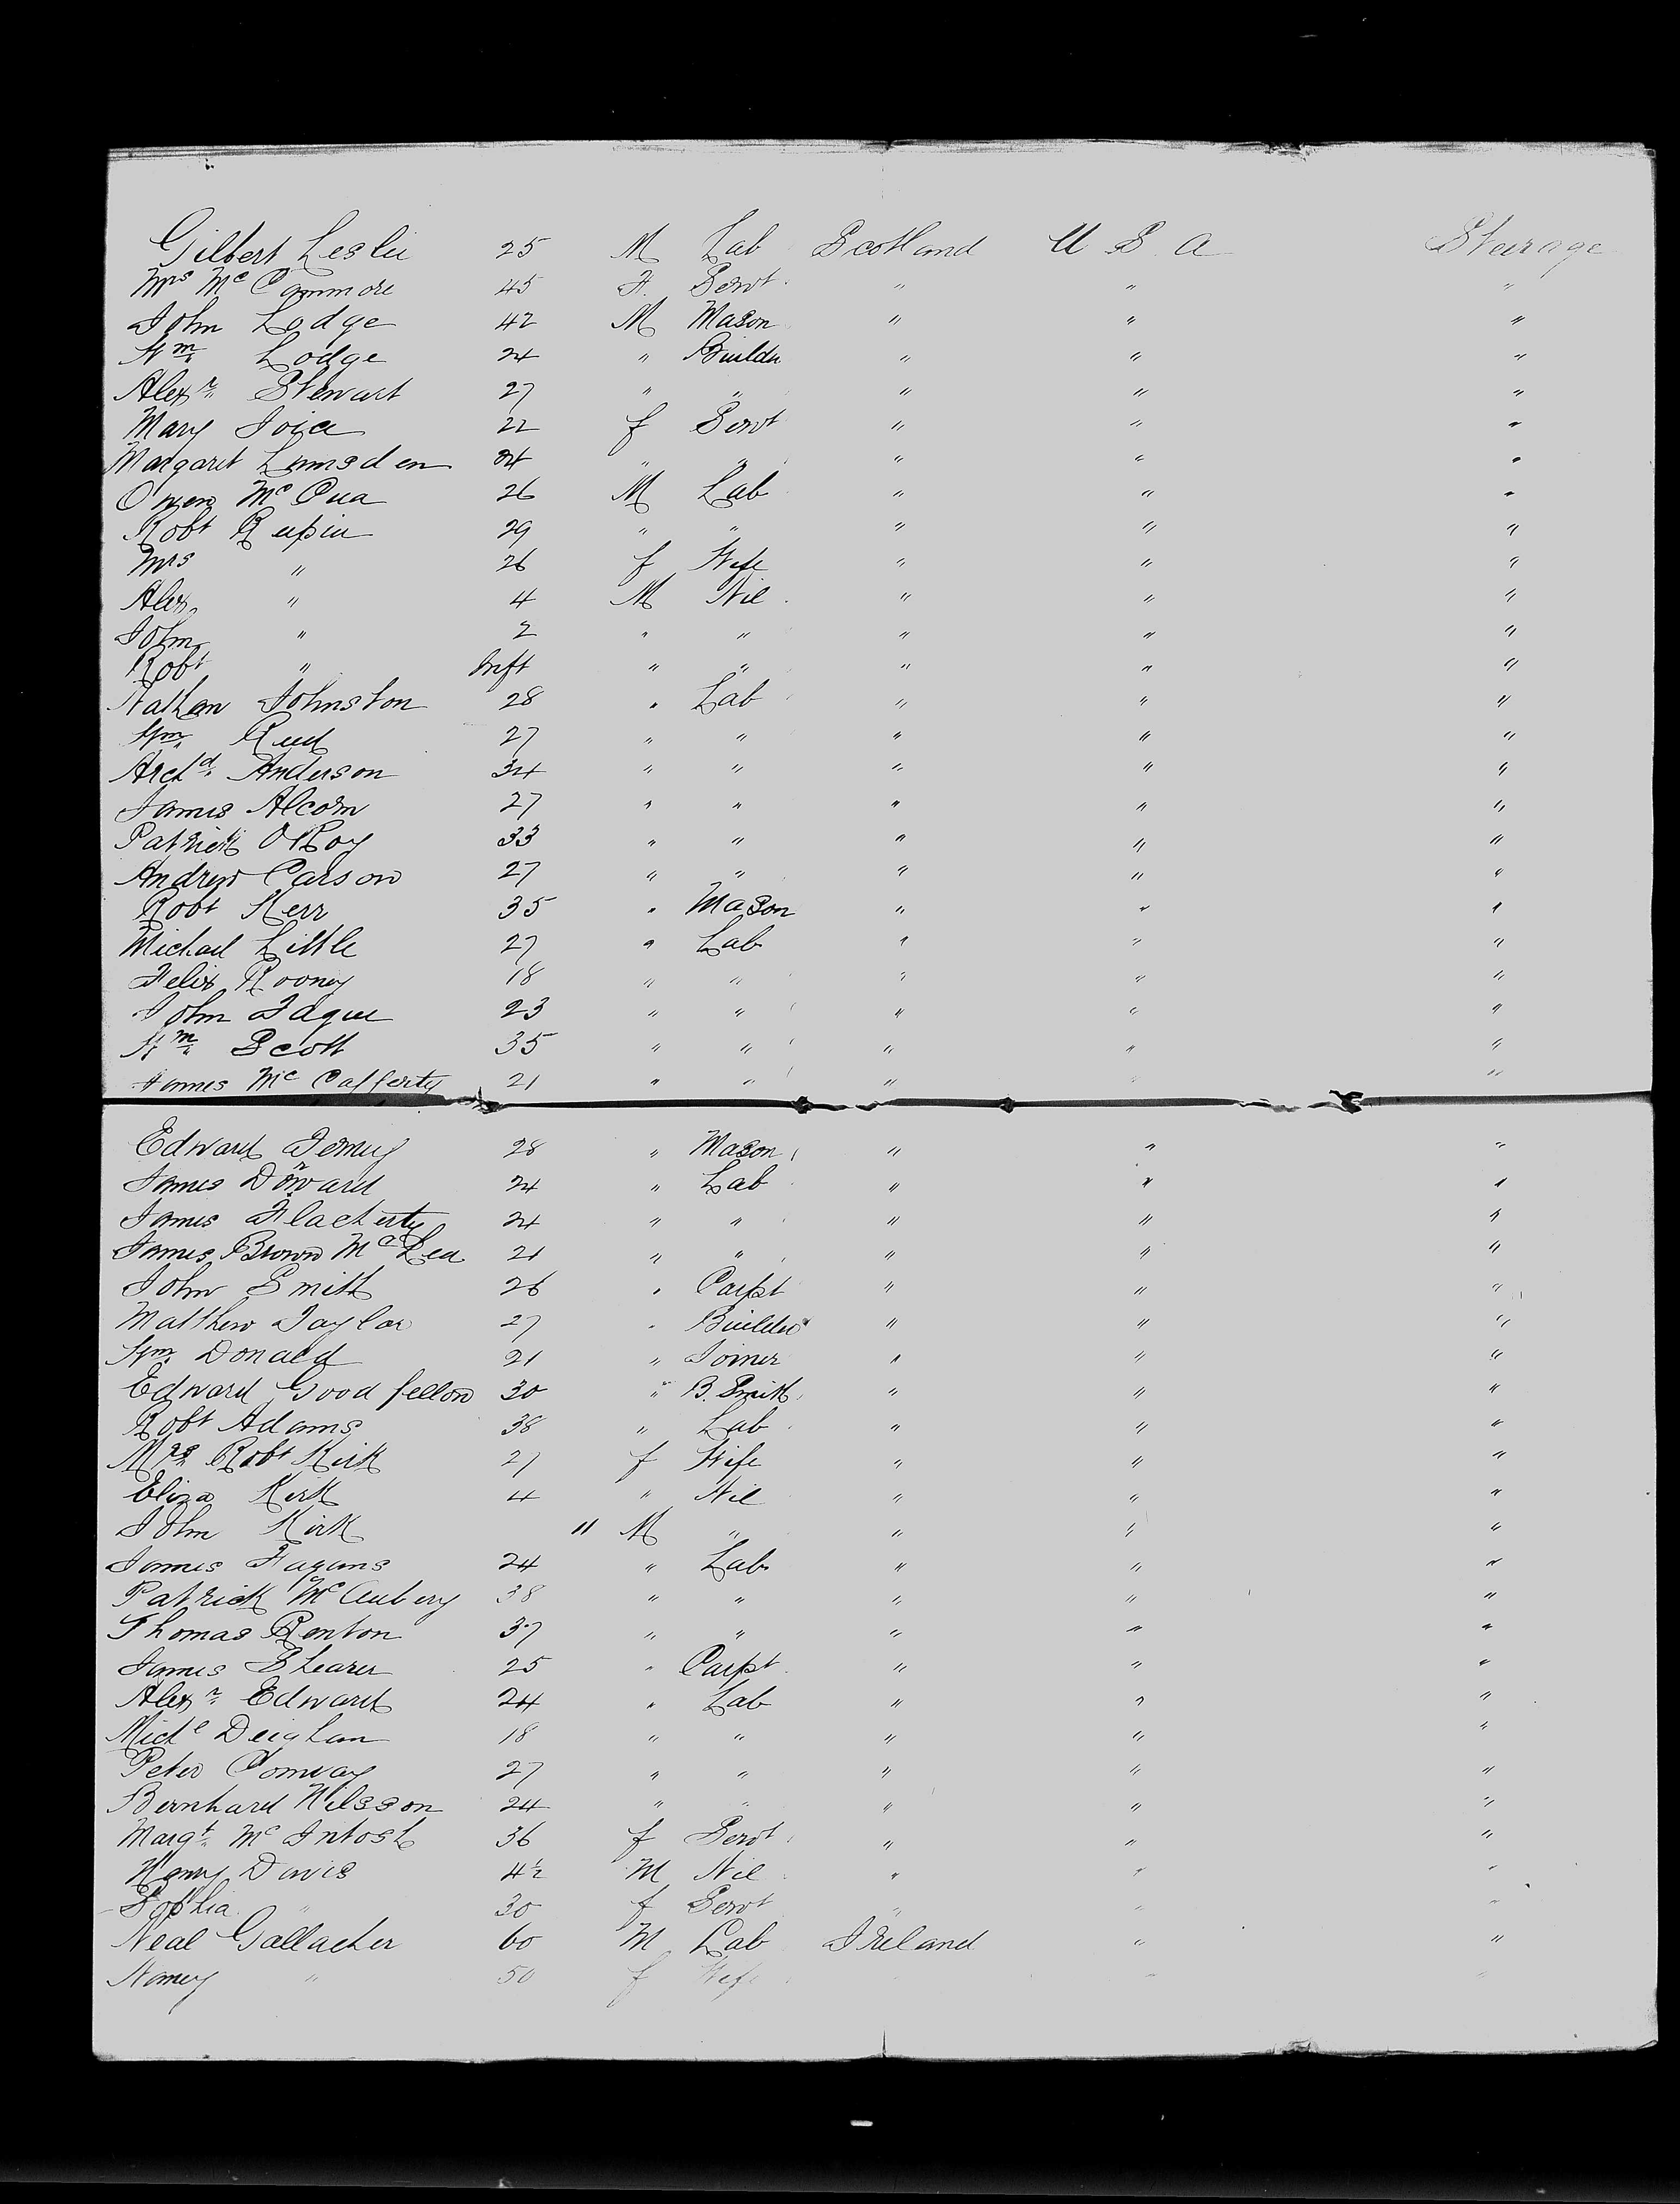 Gilbert Leslie 25 M Lab Scotland U S A Steerage
Mrs Mc Cammore 45 F. Servt " " "
John Lodge 42 M Mason " " "
Wm Lodge 24 " Builder " " "
Alexr Stewart 27 " " " " "
Mary Joice 22 f Servt " " "
Margaret Lumsden 24 " " " " "
Owen Mc Cua 26 M Lab " " "
Robt 29 " " " " "
Mrs " 26 f Wife " " "
Alex " 4 M Nil " " "
John " 2 " " " " "
Robt " Inft " " " " "
Nathan Johnston 28 " Lab " " "
Wm Reid 27 " " " " "
Archd Anderson 34 " " " " "
James Alcorn 27 " " " " "
Patrick 33 " " " " "
Andrew Carson 27 " " " " "
Robt Kerr 35 " Mason " " "
Michael Little 27 " Lab " " "
Felix Rooney 18 " " " " "
John Tague 23 " " " " "
Wm Scott 35 " " " " "
James Mc Cafferty 21 " " " " "
Edward 28 " Mason " " "
James Doward 24 " Lab " " "
James Flacherty 24 " " " " "
James Brown Mc Lea 21 " " " " "
John Smith 26 " Carpt " " "
Matthew Taylor 27 " Builder " " "
Wm Donald 21 " Joiner " " "
Edward Goodfellow 30 " B. Smith " " "
Robt Adams 38 " Lab " " "
Mrs Robt Kirk 27 f Wife " " "
Eliza Kirk 4 " Nil " " "
John Kirk " M " " " "
James Fagans 24 " Lab " " "
Patrick 38 " " " " "
Thomas Renton 37 " " " " "
James Shearer 25 " Carpt " " "
Alexr Edward 24 " Lab " " "
Michl Deighan 18 " " " " "
Peter Conway 27 " " " " "
Bernhard Nilsson 24 " " " " "
Margt Mc Intosh 36 f Servt " " "
Harry Davis 4½ M Nil " " "
Sophia " 30 f Servt " " "
Neal Gallacher 60 M Lab Ireland " "
Nancy " 50 f Wife " "